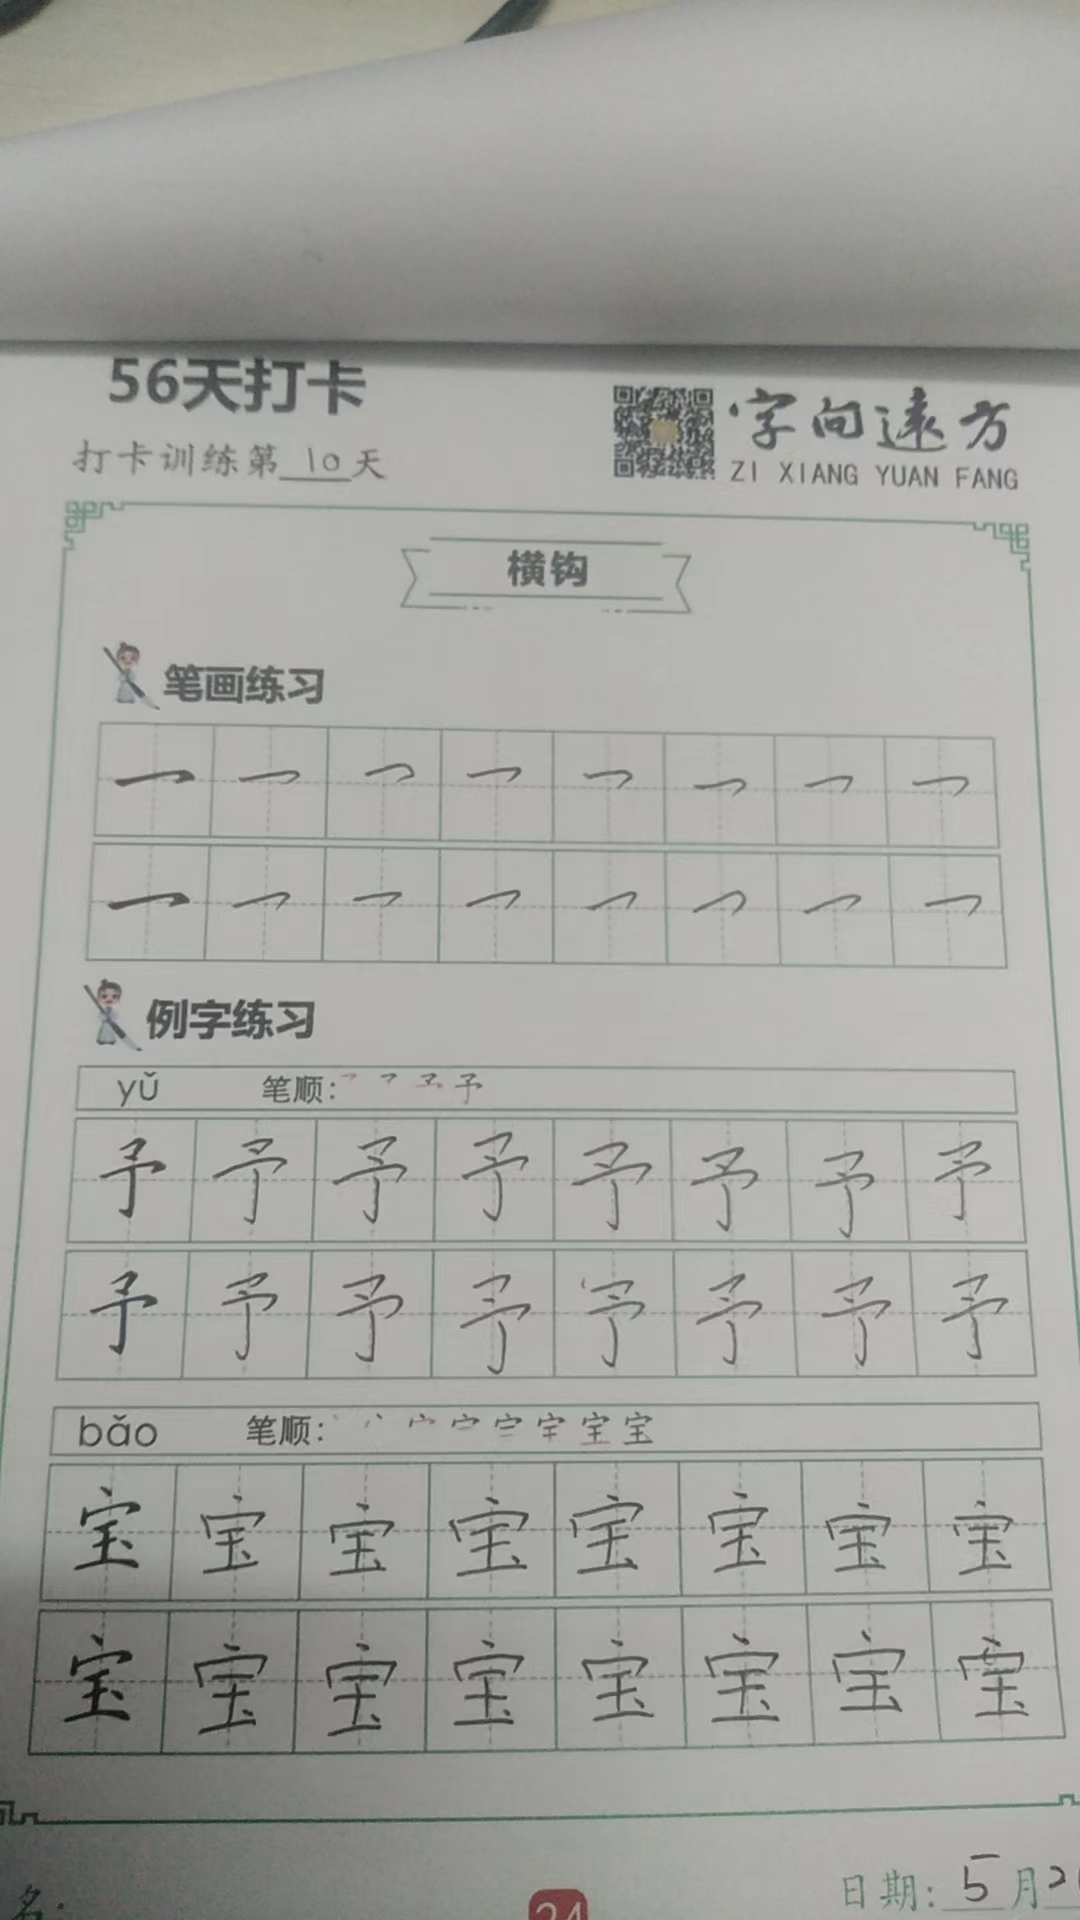 56天打卡
字向远方
打卡训练第10天
ZI XIANG YUAN FANG
横钩
笔画练习
㇖ ㇖ ㇖ ㇖ ㇖ ㇖ ㇖ ㇖
㇖ ㇖ ㇖ ㇖ ㇖ ㇖ ㇖ ㇖
例字练习
yǔ 笔顺:
予 予 予 予 予 予 予 予
予 予 予 予 予 予 予 予
bǎo 笔顺:
宝 宝 宝 宝 宝 宝 宝 宝
宝 宝 宝 宝 宝 宝 宝 宝
名:
24
日期: 5月